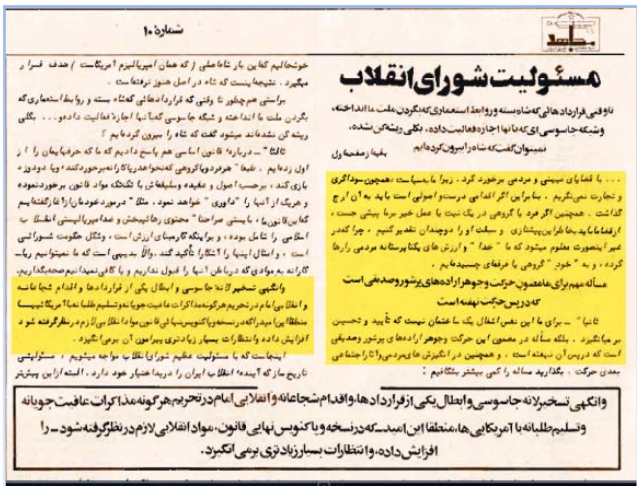 شماره ۱۰
مجاهد
مسئولیت شورای انقلاب
تا وقتی قراردادهائی که شاه بسته و روابط استعماری که بگردن ملت ما انداخته،
و شبکه جاسوسی ای که با آنها اجازه فعالیت داده، بکلی ریشه کن نشده،
نمیتوان گفت که شاه را بیرون کرده ایم
بقیه از صفحه اول
... با قضایای میهنی و مردمی برخورد کرد. زیرا ما به سیاست، همچون سوداگری
و تجارت نمی نگریم. بنابراین اگر اقدامی درست و اصولی است باید به آن ارج
گذاشت. همچنین اگر فرد یا گروهی در یک نیت یا عمل خیر بر ما پیشی جست،
از قضا ما باید بخاطر این پیشتازی و سبقت او را دوچندان تقدیر کنیم، چرا که در
غیر اینصورت معلوم میشود که ما "خدا" و ارزش های یکتاپرستانه مردمی را رها
کرده، و به "خود" گروهی یا فرقه ای چسبیده ایم.
مسأله مهم برای ما مضمون حرکت و جوهر اراده های پرشور و صدیقی است
که در پس حرکت نهفته است
ثانیا" ـ برای ما این نفس اشغال یک ساختمان نیست که تأیید و تحسین
بر میانگیزد. بلکه مسأله در مضمون این حرکت وجوهر اراده های پرشور وصدیقی
است که در پس آن نهفته است. و همچنین در انگیزش های مردمی و آثار اجتماعی
بعدی حرکت. بگذارید مسأله را کمی بیشتر بشکافیم:
خوشحالیم که این بار شاه اصلی (که همان امپریالیزم آمریکاست) هدف قرار
میگیرد. نتیجه اینست که شاه در اصل هنوز نرفته است.
براستی هم چطور تا وقتی که قراردادهائی که شاه بسته و روابط استعماری که
بگردن ملت ما انداخته و شبکه جاسوسی که به آنها اجازه فعالیت داده و... بکلی
ریشه کن نشده اند میشود گفت که شاه را بیرون کرده ایم؟
ثالثا" ـ درباره قانون اساسی هم پاسخ دادیم که ما که حرفهایمان را از
اول زده ایم. طبعا" هر فرد و یا گروهی که نخواهد ریاکارانه برخورد کند، و یا دودوزه
بازی کند، برحسب اصول و عقیده و سلیقه اش با تک تک مواد قانون برخورد نموده
و هر یک از آنها را "داوری" خواهد نمود. مثلا" در مورد خودمان از آغاز گفته ایم
که این قانون ما، بایستی صراحتا" محتوی رهائیبخش و ضد امپریالیستی انقلاب
اسلامی را شامل بوده، و بر اینکه کار مبنای ارزش است، وشکل حکومت شورائی
است، و امثال اینها را آشکارا تأکید کند. والا بدیهی است که ما نمیتوانیم ریا-
کارانه به موادی که در باطن آنها را قبول نداریم و یا کافی نمیدانیم صحه بگذاریم.
وانگهی تسخیر لانه جاسوسی و ابطال یکی از قراردادها و اقدام شجاعانه
و انقلابی امام در تحریم هرگونه مذاکرات عافیت جویانه و تسلیم طلبانه با آمریکائیها
منطقا این امید را که در نسخه و یا کنویس نهایی قانون مواد انقلابی لازم در نظر گرفته شود
افزایش داده و انتظارات بسیار زیادتری پیرامون آن برمی انگیزد.
اینجاست که با مسئولیت عظیم شورای انقلاب مواجه میشویم. مسئولیتی
تاریخ ساز که آینده انقلاب ایران را در ید اختیار خود دارد. البته از این پیش تر
وانگهی تسخیر لانه جاسوسی و ابطال یکی از قراردادها، و اقدام شجاعانه و انقلابی امام در تحریم هرگونه مذاکرات عافیت جویانه
و تسلیم طلبانه با آمریکایی ها، منطقا این امید ـ که در نسخه و یا کنویس نهایی قانون، مواد انقلابی لازم در نظر گرفته شود ـ را
افزایش داده، و انتظارات بسیار زیادتری برمی انگیزد.